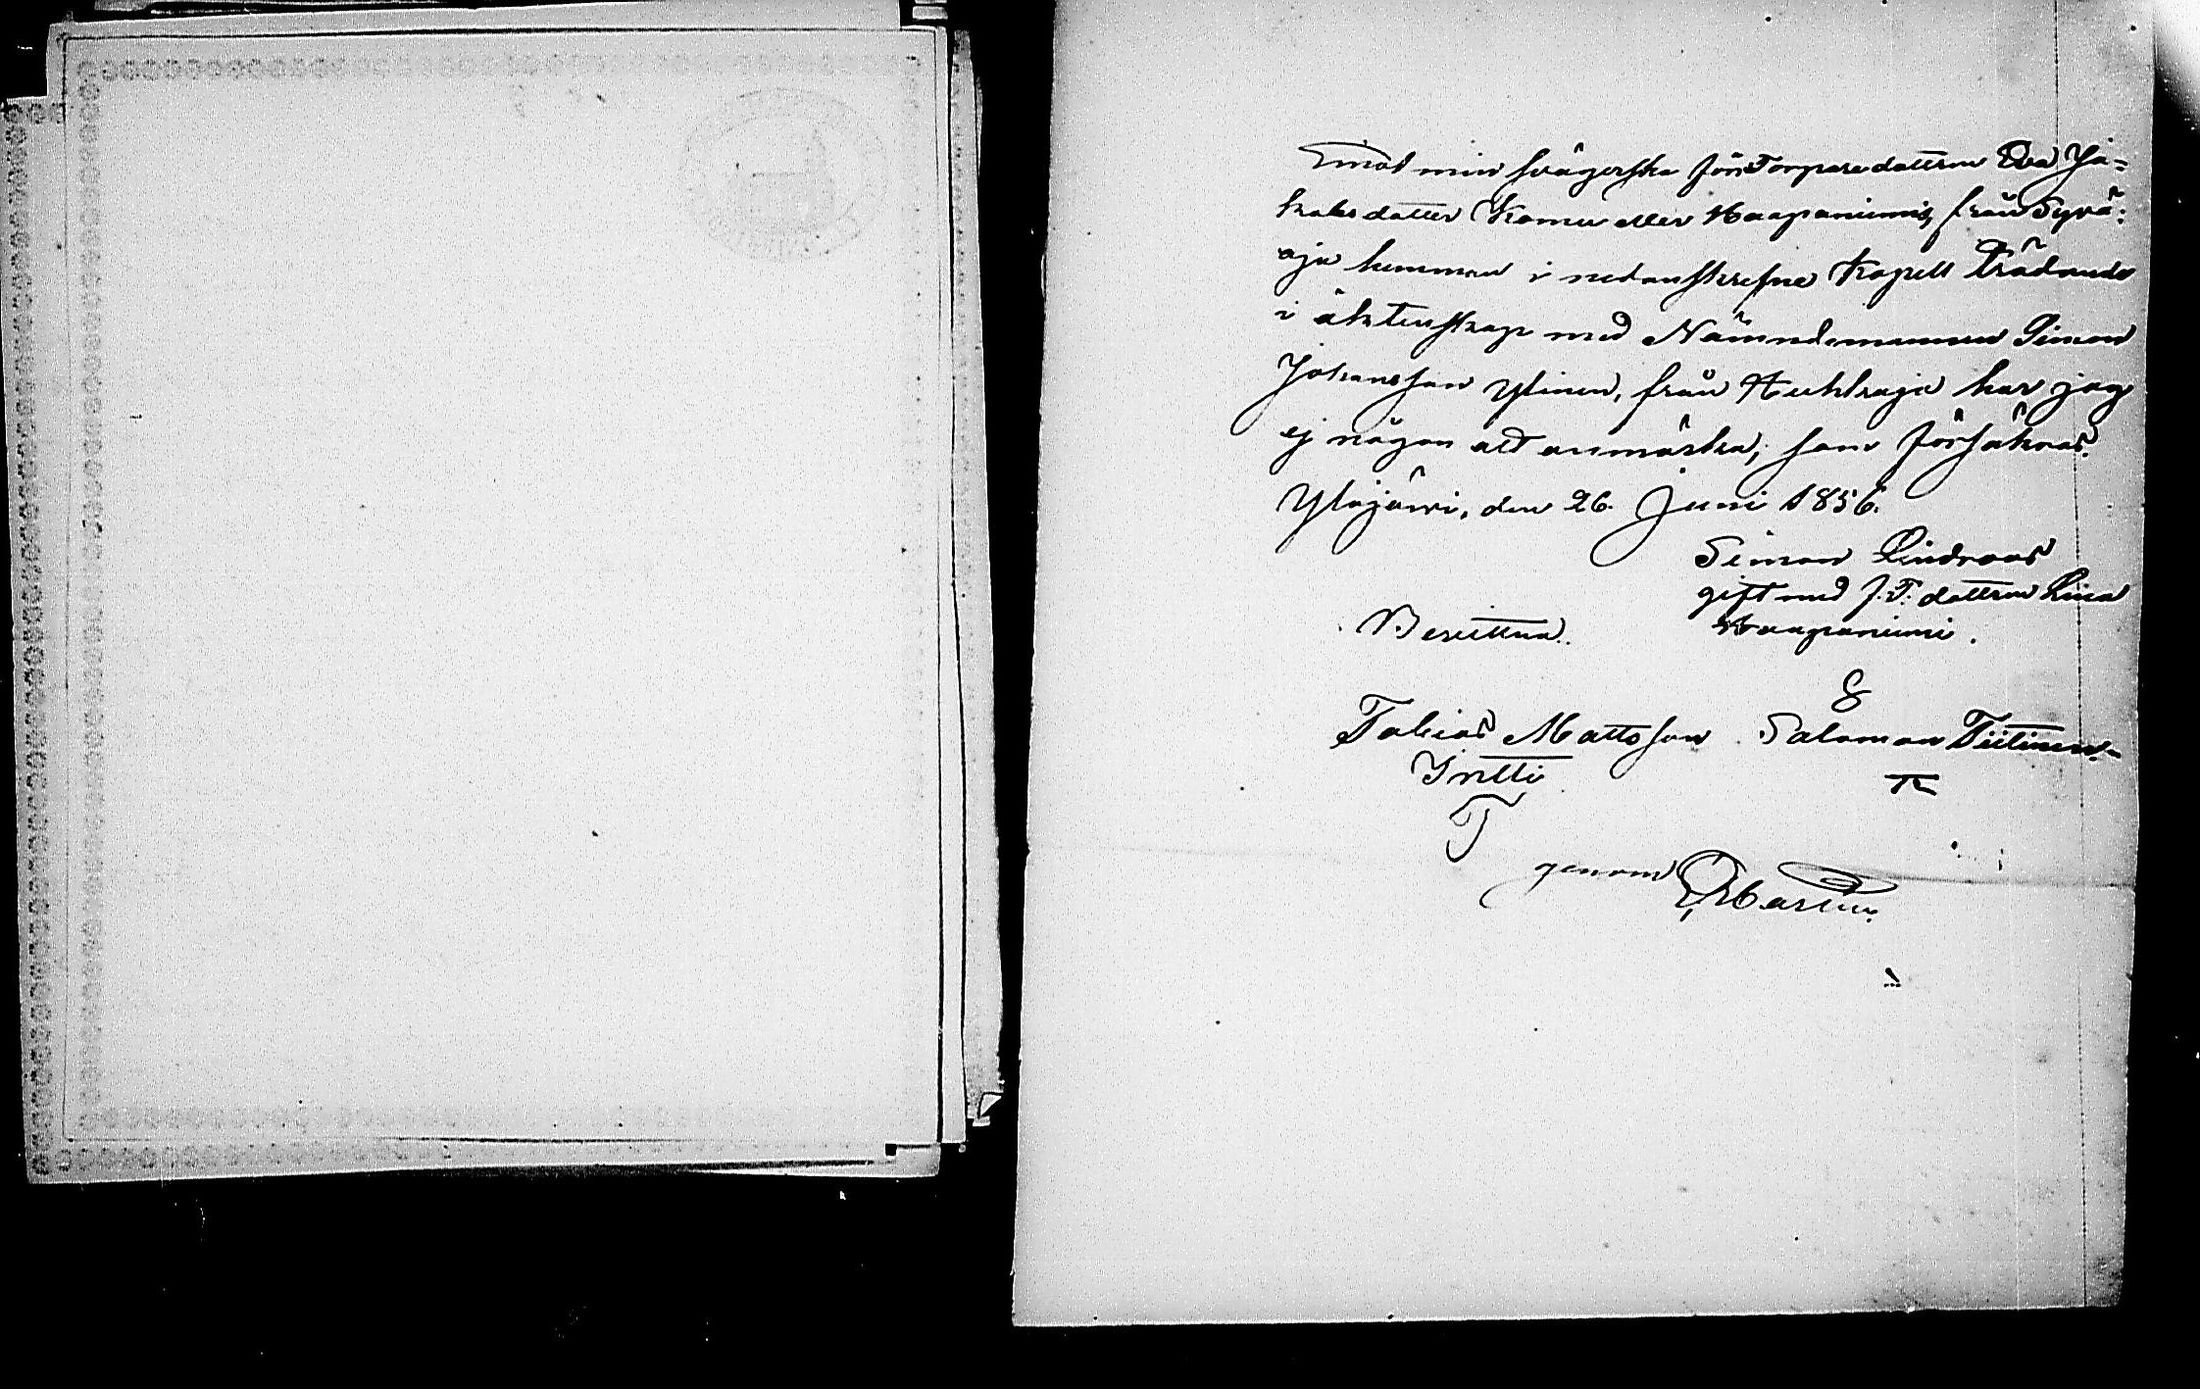 Emot min svägerska för Torpare dottren Eva Ja=
kobsdotter Komu eller Haapaniemis, från Syvä=
oja hemman i nedanskrefne Kapell Trädande
i äktenskap med Nämndemannen Simon
Johansson Ylinen, från Huhtraja har jag
ej någon att anmärka; som försäkras.
Ylöjärvi, den 26. Juni 1856.
Simon Lindroos
gift med J. T. dottren Lisa
Haapaniemi.
Bevittna.
Tobias Mattsson Salomon Tiitinen.
Yrtti
genom